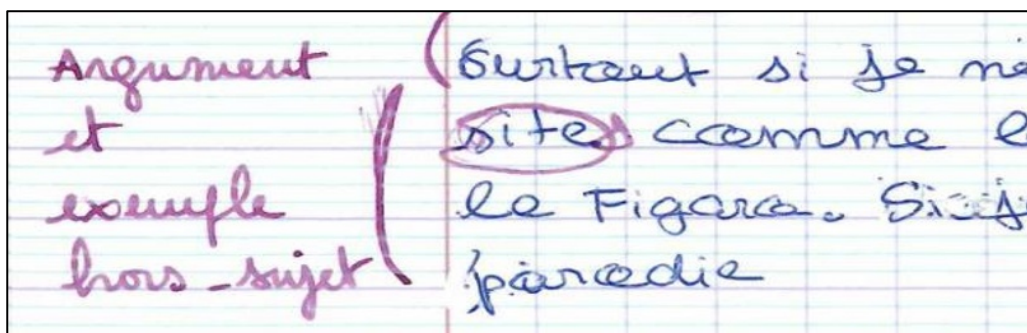 Argument
et
exemple
hors-sujet
Surtout si je
sites comme
le Figaro. Si
parodie